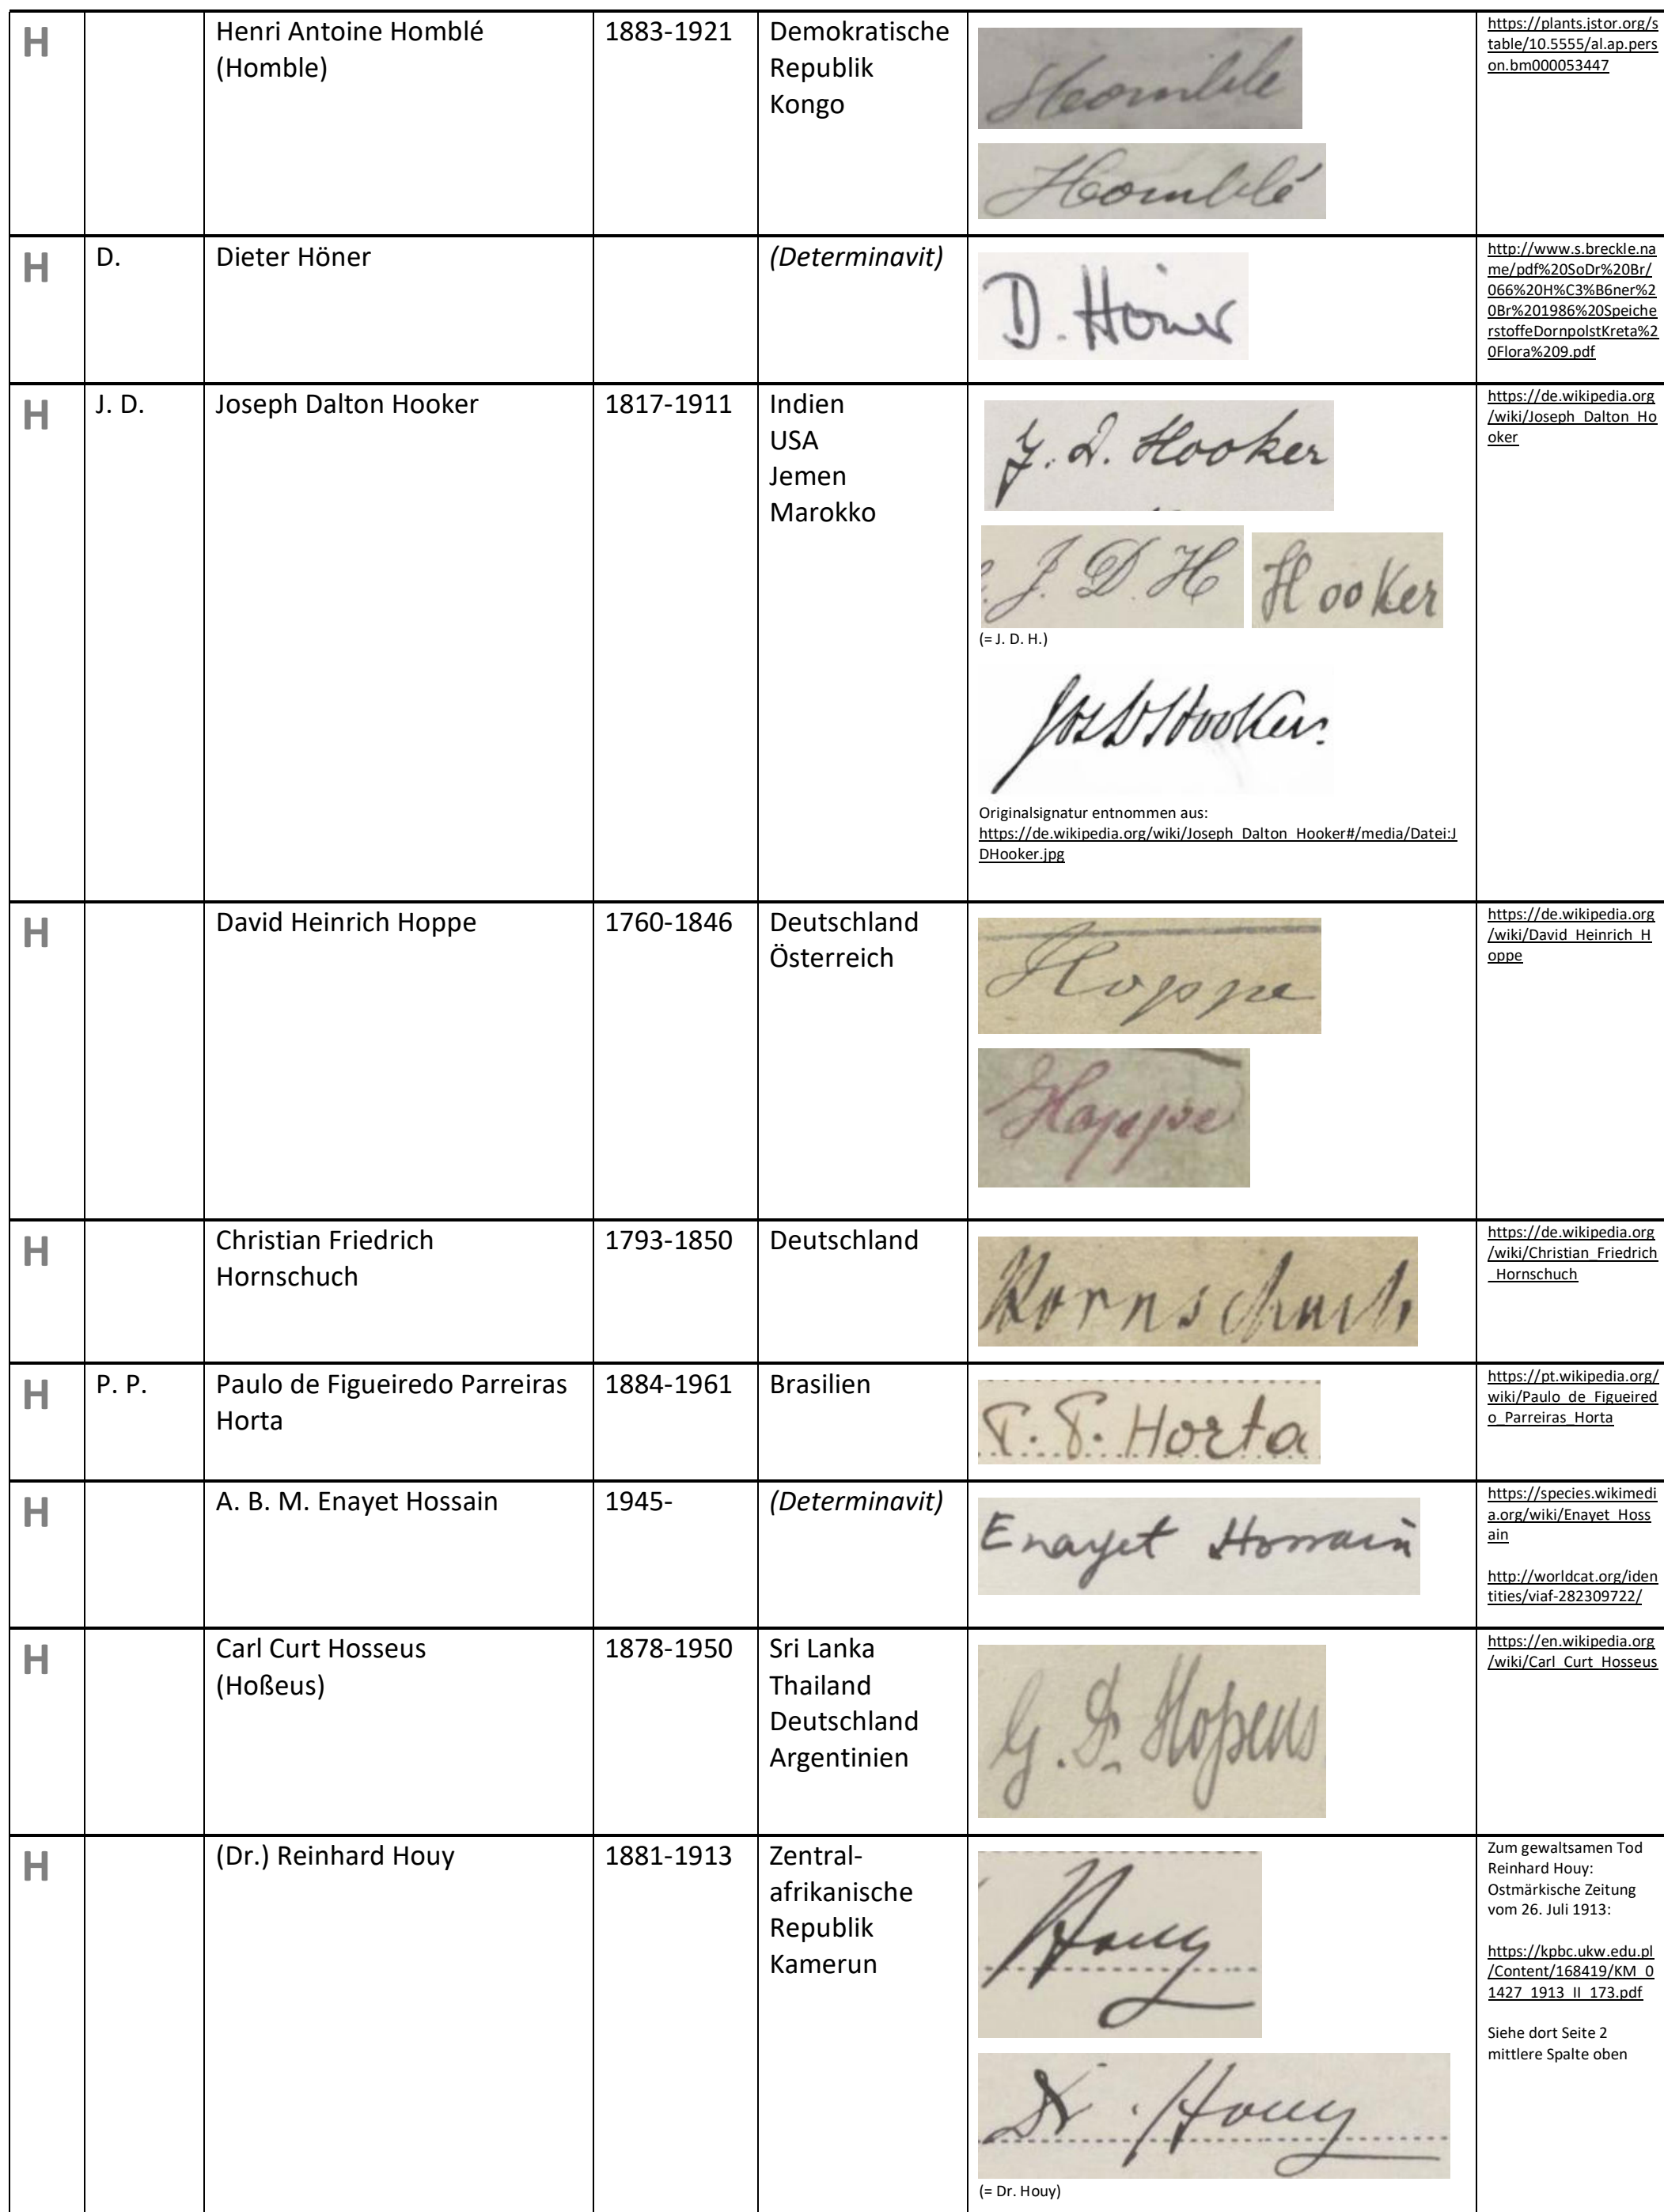 H
Henri Antoine Homblé
(Homble)
1883-1921
Demokratische
Republik
Kongo
Homble
Homblé
https://plants.jstor.org/s
table/10.5555/al.ap.pers
on.bm000053447
H
D.
Dieter Höner
(Determinavit)
D. Höner
http://www.s.breckle.na
me/pdf%20SoDr%20Br/
066%20H%C3%B6ner%2
0Br%201986%20Speiche
rstoffeDornpolstKreta%2
0Flora%209.pdf
H
J. D.
Joseph Dalton Hooker
1817-1911
Indien
USA
Jemen
Marokko
J. D. Hooker
J. D. H
Hooker
(= J. D. H.)
Jos D Hooker.
Originalsignatur entnommen aus:
https://de.wikipedia.org/wiki/Joseph_Dalton_Hooker#/media/Datei:J
DHooker.jpg
https://de.wikipedia.org
/wiki/Joseph_Dalton_Ho
oker
H
David Heinrich Hoppe
1760-1846
Deutschland
Österreich
Hoppe
Hoppe
https://de.wikipedia.org
/wiki/David_Heinrich_H
oppe
H
Christian Friedrich
Hornschuch
1793-1850
Deutschland
Hornschuch
https://de.wikipedia.org
/wiki/Christian_Friedrich
_Hornschuch
H
P. P.
Paulo de Figueiredo Parreiras
Horta
1884-1961
Brasilien
P. P. Horta
https://pt.wikipedia.org/
wiki/Paulo_de_Figueired
o_Parreiras_Horta
H
A. B. M. Enayet Hossain
1945-
(Determinavit)
Enayet Hossain
https://species.wikimedi
a.org/wiki/Enayet_Hoss
ain
http://worldcat.org/iden
tities/viaf-282309722/
H
Carl Curt Hosseus
(Hoßeus)
1878-1950
Sri Lanka
Thailand
Deutschland
Argentinien
Hoßeus
https://en.wikipedia.org
/wiki/Carl_Curt_Hosseus
H
(Dr.) Reinhard Houy
1881-1913
Zentral-
afrikanische
Republik
Kamerun
Houy
Dr. Houy
(= Dr. Houy)
Zum gewaltsamen Tod
Reinhard Houy:
Ostmärkische Zeitung
vom 26. Juli 1913:
https://kpbc.ukw.edu.pl
/Content/168419/KM_0
1427_1913_II_173.pdf
Siehe dort Seite 2
mittlere Spalte oben